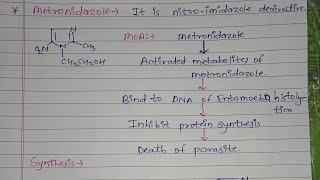 * Metronidazole → It is nitro-imidazole derivative.
MOA:→ metronidazole
N
N
CH3
O2N
CH2CH2OH
Activated metabolites of
metronidazole.
Bind to DNA of Entamoeba histoly-
tica
Inhibit protein synthesis
Death of parasite.
Synthesis →